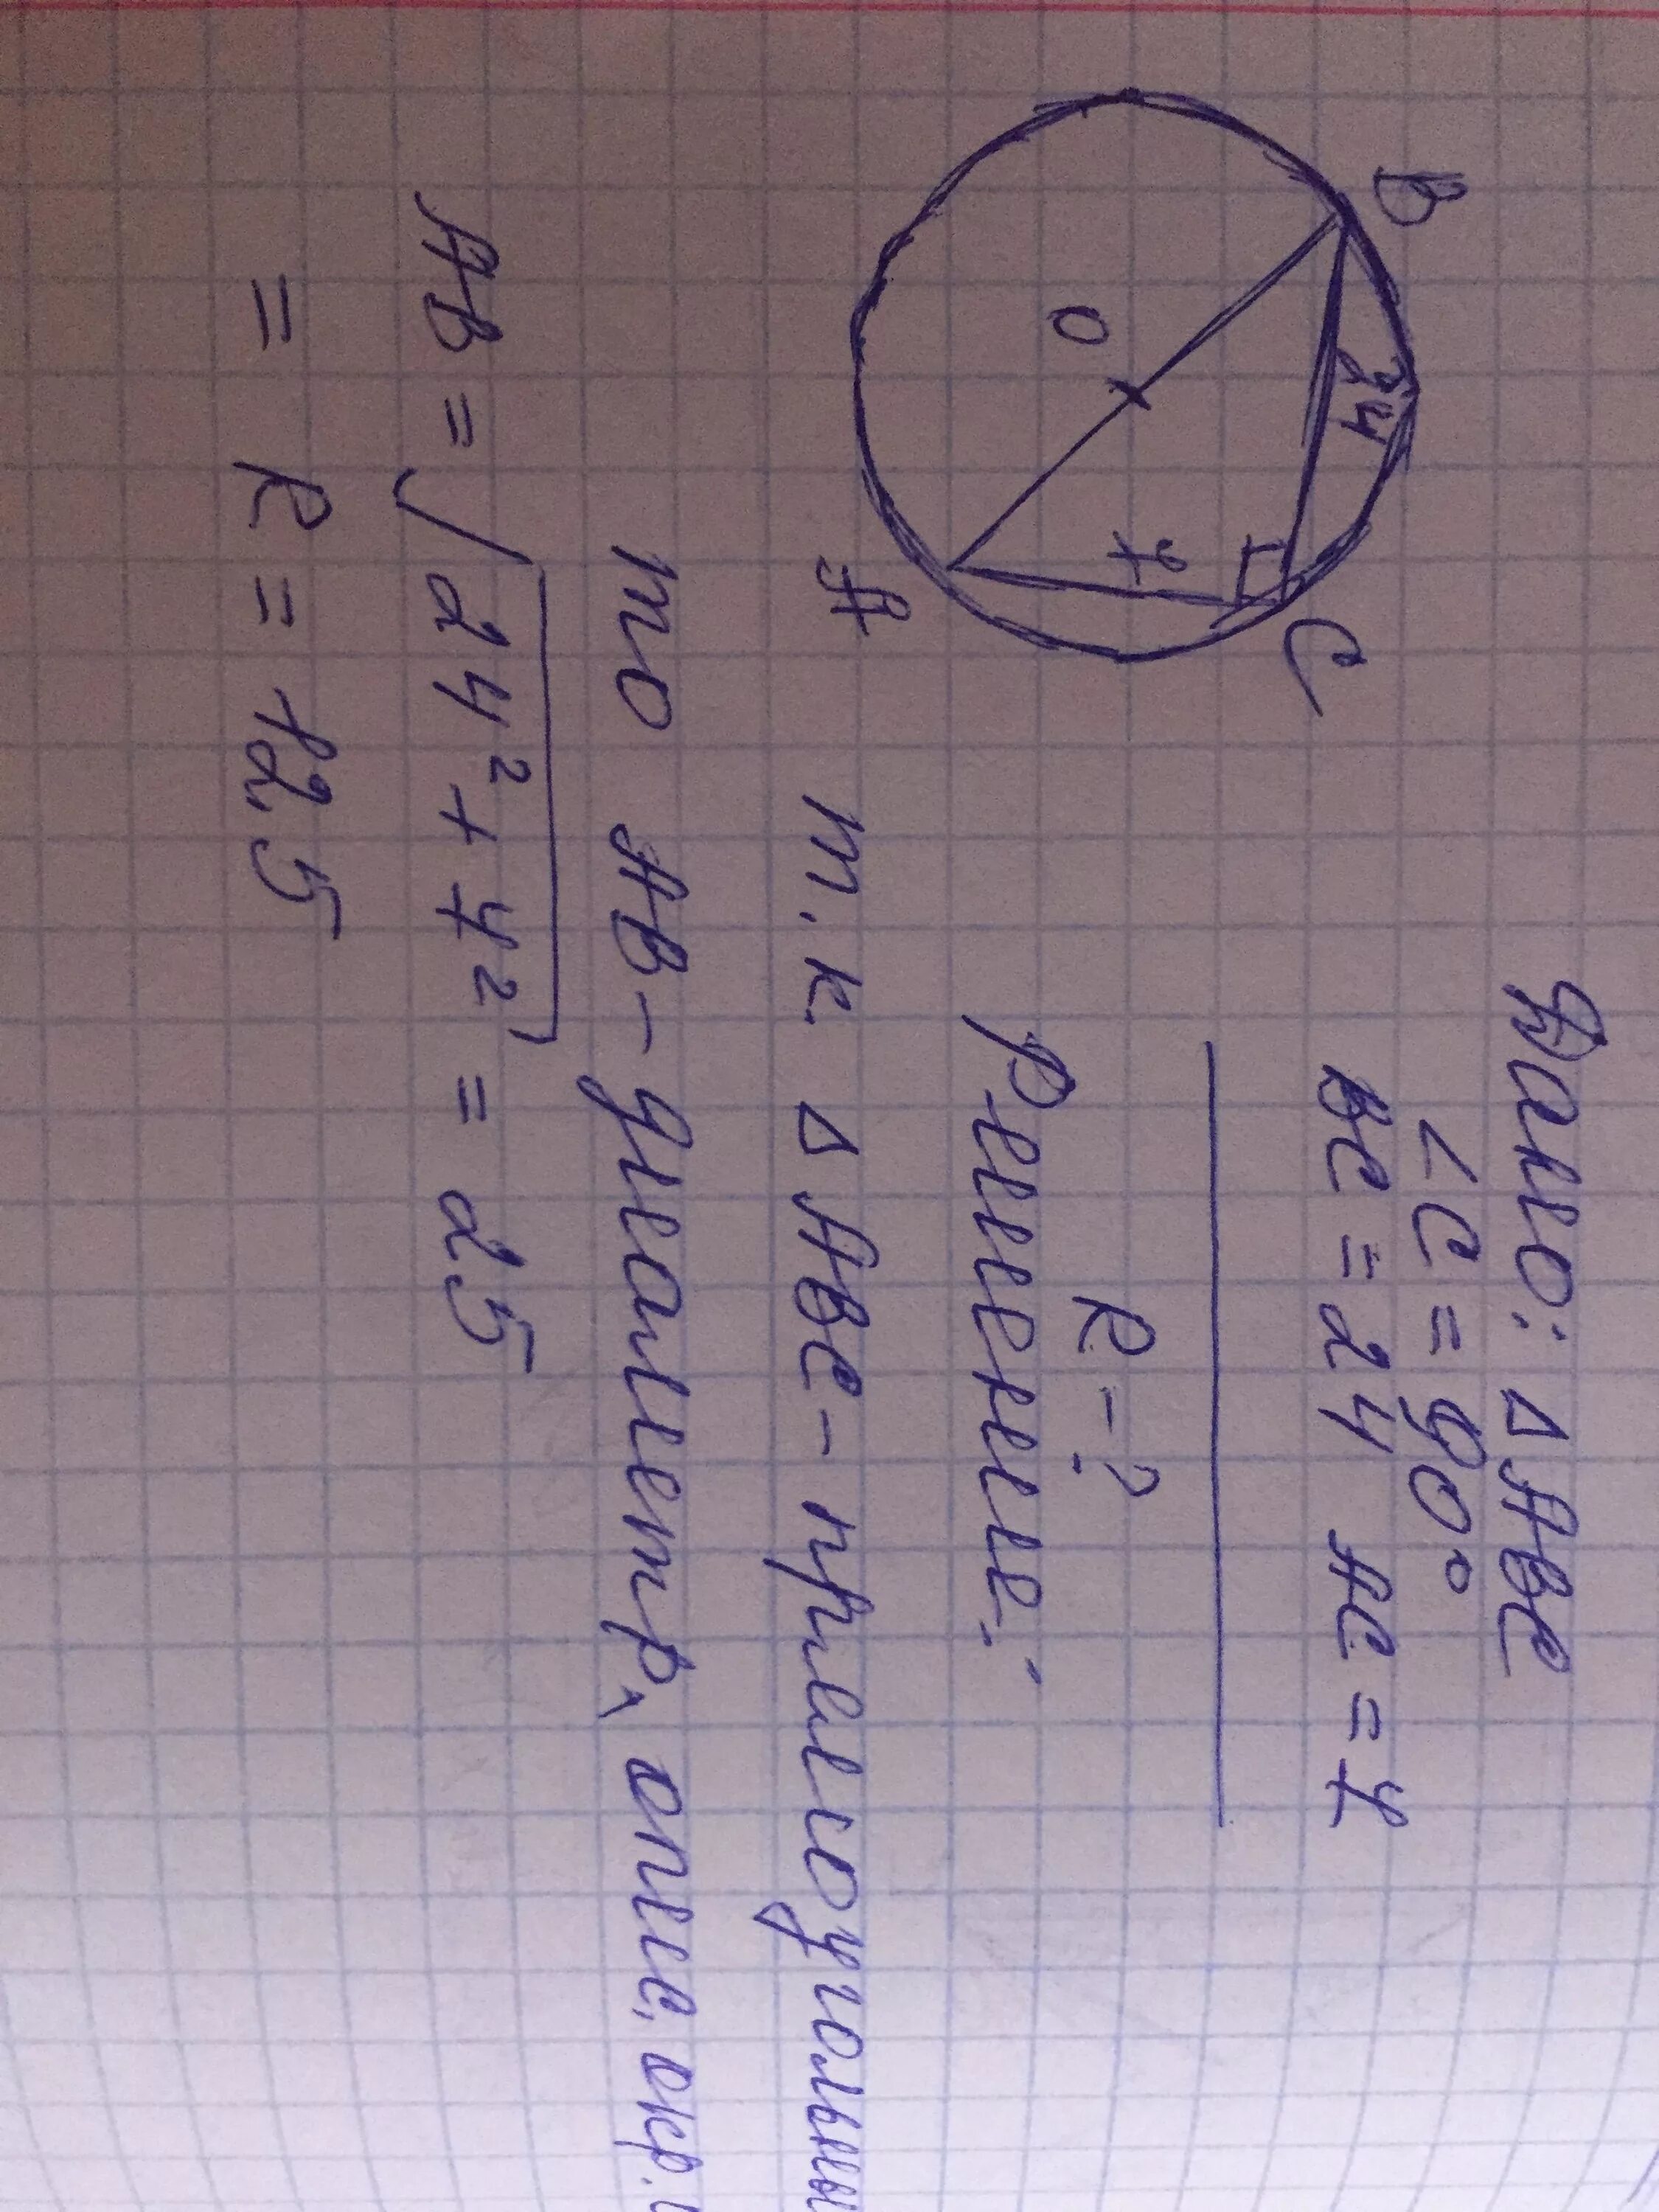 Дано: △ABC
∠C = 90°
BC = 24 AC = 7
R - ?
Решение:
B
24
C
O
7
A
т.к. △ABC - прямоугольны
то AB - диаметр, опис. окр.
AB = √24² + 7² = 25
= R = 12,5